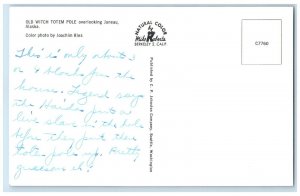 OLD WITCH TOTEM POLE overlooking Juneau,
Alaska.
Color photo by Joachim Alex
NATURAL COLOR
Mike Roberts
BERKELEY 2, CALIF.
C7760
Published by C. P. Johnston Company, Seattle, Washington
This is only about 3
or 4 blocks from the
house. Legend says
the Haida put a
live slave in the hole
before they put the
totem pole up. Pretty
gruesome!